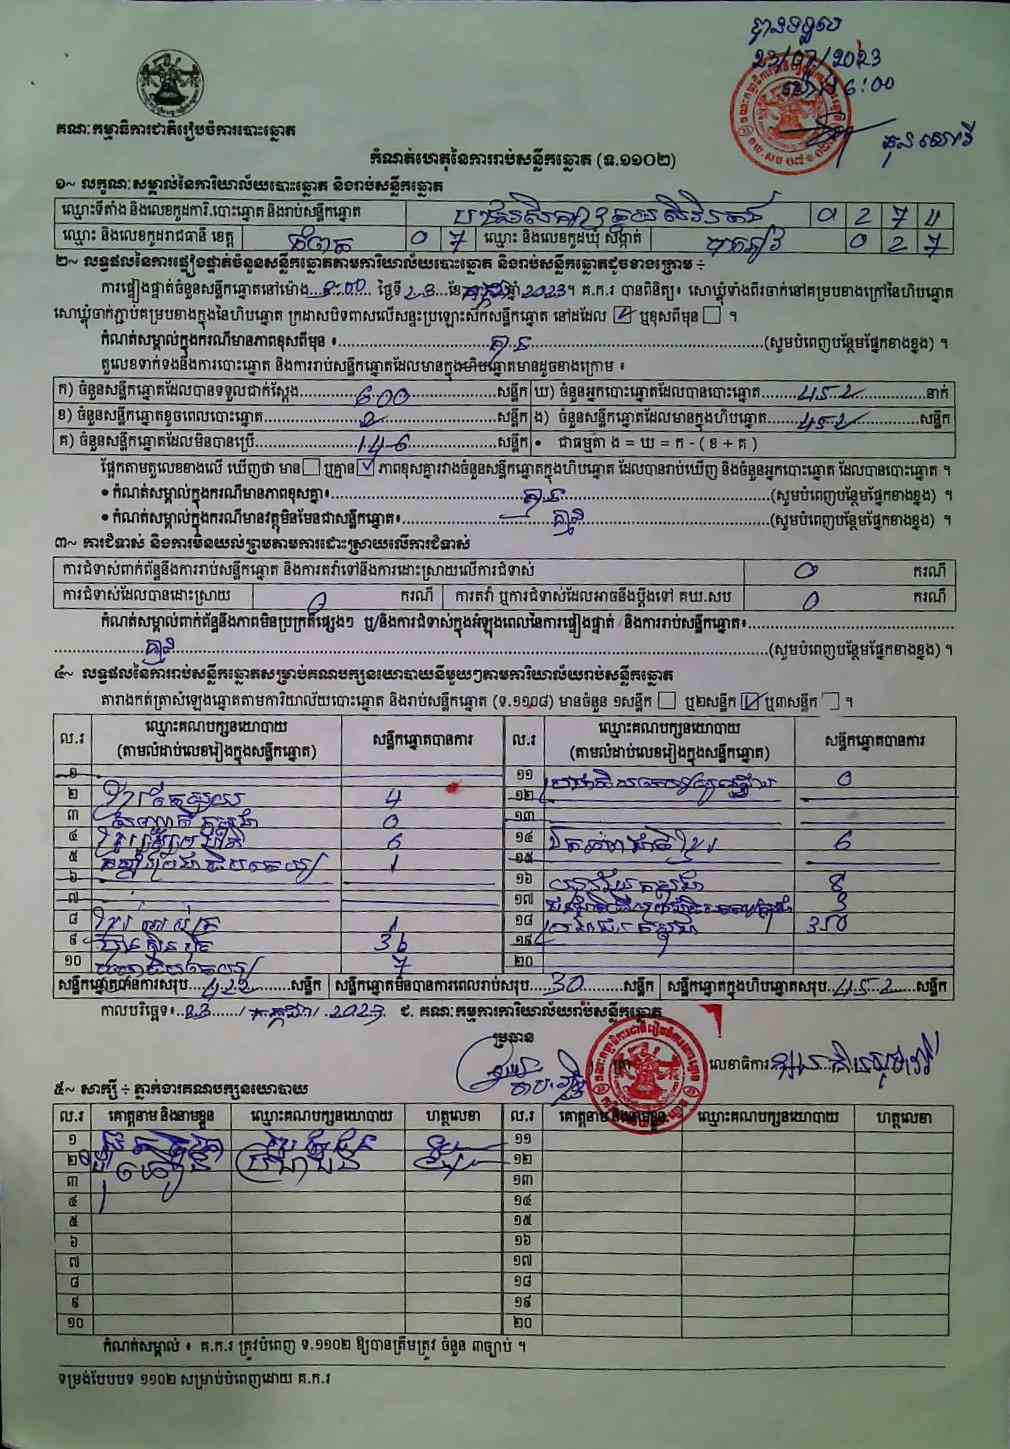 បានទទួល
23/07/2023
ម៉ោង 6:00
គណៈកម្មាធិការជាតិរៀបចំការបោះឆ្នោត
កំណត់ហេតុនៃការរាប់សន្លឹកឆ្នោត (ទ.១១០២)
១~ លក្ខណៈសម្គាល់នៃការិយាល័យបោះឆ្នោត និងរាប់សន្លឹកឆ្នោត
ឈ្មោះទីតាំង និងលេខកូដការិ.បោះឆ្នោត និងរាប់សន្លឹកឆ្នោត 0 2 7 4
ឈ្មោះ និងលេខកូដរាជធានី ខេត្ត កំពត 0 7 ឈ្មោះ និងលេខកូដឃុំ សង្កាត់ 0 2 7
២~ លទ្ធផលនៃការផ្ទៀងផ្ទាត់ចំនួនសន្លឹកឆ្នោតតាមការិយាល័យបោះឆ្នោត និងរាប់សន្លឹកឆ្នោតដូចខាងក្រោម ÷
ការផ្ទៀងផ្ទាត់ចំនួនសន្លឹកឆ្នោតនៅម៉ោង ថ្ងៃទី 23 ខែ កក្កដា ឆ្នាំ 2023។ គ.ក.រ បានពិនិត្យ៖ សោឃ្លុំទាំងពីរចាក់នៅគម្របខាងក្រៅនៃហិបឆ្នោត
សោឃ្លុំចាក់ភ្ជាប់គម្របខាងក្នុងនៃហិបឆ្នោត ក្រដាសបិទពាសលើសន្ទះប្រឡោះស៊កសន្លឹកឆ្នោត នៅដដែល ☑ ឬខុសពីមុន ☐ ។
កំណត់សម្គាល់ក្នុងករណីមានភាពខុសពីមុន ៖ គ្មាន (សូមបំពេញបន្ថែមផ្នែកខាងខ្នង) ។
តួលេខទាក់ទងនឹងការបោះឆ្នោត និងការរាប់សន្លឹកឆ្នោតដែលមានក្នុងហិបឆ្នោតមានដូចខាងក្រោម ៖
ក) ចំនួនសន្លឹកឆ្នោតដែលបានទទួលជាក់ស្តែង 600 សន្លឹក ឃ) ចំនួនអ្នកបោះឆ្នោតដែលបានបោះឆ្នោត 452 នាក់
ខ) ចំនួនសន្លឹកឆ្នោតខូចពេលបោះឆ្នោត 2 សន្លឹក ង) ចំនួនសន្លឹកឆ្នោតដែលមានក្នុងហិបឆ្នោត 452 សន្លឹក
គ) ចំនួនសន្លឹកឆ្នោតដែលមិនបានប្រើ 146 សន្លឹក • ជាធម្មតា ង = ឃ = ក - ( ខ + គ )
ផ្អែកតាមតួលេខខាងលើ ឃើញថា មាន ☐ ឬគ្មាន ☑ ភាពខុសគ្នារវាងចំនួនសន្លឹកឆ្នោតក្នុងហិបឆ្នោត ដែលបានរាប់ឃើញ និងចំនួនអ្នកបោះឆ្នោត ដែលបានបោះឆ្នោត ។
• កំណត់សម្គាល់ក្នុងករណីមានភាពខុសគ្នា៖ គ្មាន (សូមបំពេញបន្ថែមផ្នែកខាងខ្នង) ។
• កំណត់សម្គាល់ក្នុងករណីមានវត្ថុមិនមែនជាសន្លឹកឆ្នោត៖ គ្មាន (សូមបំពេញបន្ថែមផ្នែកខាងខ្នង) ។
៣~ ការជំទាស់ និងការមិនយល់ព្រមតាមការដោះស្រាយលើការជំទាស់
ការជំទាស់ពាក់ព័ន្ធនឹងការរាប់សន្លឹកឆ្នោត និងការតវ៉ាទៅនឹងការដោះស្រាយលើការជំទាស់ 0 ករណី
ការជំទាស់ដែលបានដោះស្រាយ 0 ករណី ការតវ៉ា ឬការជំទាស់ដែលអាចនឹងប្តឹងទៅ គឃ.សប 0 ករណី
កំណត់សម្គាល់ពាក់ព័ន្ធនឹងភាពមិនប្រក្រតីផ្សេងៗ ឬ/និងការជំទាស់ក្នុងអំឡុងពេលនៃការផ្ទៀងផ្ទាត់ និងការរាប់សន្លឹកឆ្នោត៖
គ្មាន (សូមបំពេញបន្ថែមផ្នែកខាងខ្នង) ។
៤~ លទ្ធផលនៃការរាប់សន្លឹកឆ្នោតសម្រាប់គណបក្សនយោបាយនីមួយៗតាមការិយាល័យរាប់សន្លឹកឆ្នោត
តារាងកត់ត្រាសំឡេងឆ្នោតតាមការិយាល័យបោះឆ្នោត និងរាប់សន្លឹកឆ្នោត (ទ.១១០៨) មានចំនួន ១សន្លឹក ☐ ឬ២សន្លឹក ☑ ឬ៣សន្លឹក ☐ ។
ល.រ ឈ្មោះគណបក្សនយោបាយ (តាមលំដាប់លេខរៀងក្នុងសន្លឹកឆ្នោត) សន្លឹកឆ្នោតបានការ ល.រ ឈ្មោះគណបក្សនយោបាយ (តាមលំដាប់លេខរៀងក្នុងសន្លឹកឆ្នោត) សន្លឹកឆ្នោតបានការ
១ ១១ 0
២ 4 ១២
៣ 0 ១៣
៤ 6 ១៤ 6
៥ 1 ១៥
៦ ១៦ 8
៧ ១៧
៨ 1 ១៨ 350
៩ 36 ១៩
១០ 7 ២០
សន្លឹកឆ្នោតបានការសរុប 422 សន្លឹក សន្លឹកឆ្នោតមិនបានការពេលរាប់សរុប 30 សន្លឹក សន្លឹកឆ្នោតក្នុងហិបឆ្នោតសរុប 452 សន្លឹក
កាលបរិច្ឆេទ៖ 23 / កក្កដា / 2023 ជ. គណៈកម្មការការិយាល័យរាប់សន្លឹកឆ្នោត
ប្រធាន
លេខាធិការ
៥~ សាក្សី ÷ ភ្នាក់ងារគណបក្សនយោបាយ
ល.រ គោត្តនាម និងនាមខ្លួន ឈ្មោះគណបក្សនយោបាយ ហត្ថលេខា ល.រ គោត្តនាម និងនាមខ្លួន ឈ្មោះគណបក្សនយោបាយ ហត្ថលេខា
១ ១១
២ ១២
៣ ១៣
៤ ១៤
៥ ១៥
៦ ១៦
៧ ១៧
៨ ១៨
៩ ១៩
១០ ២០
កំណត់សម្គាល់ ៖ គ.ក.រ ត្រូវបំពេញ ទ.១១០២ ឱ្យបានត្រឹមត្រូវ ចំនួន ៣ច្បាប់ ។
ទម្រង់បែបបទ ១១០២ សម្រាប់បំពេញដោយ គ.ក.រ